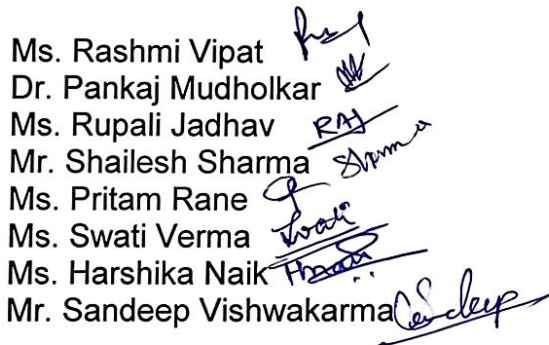 Ms. Rashmi Vipat
Dr. Pankaj Mudholkar
Ms. Rupali Jadhav RAJ
Mr. Shailesh Sharma Sharma
Ms. Pritam Rane
Ms. Swati Verma Swati
Ms. Harshika Naik
Mr. Sandeep Vishwakarma Sandeep